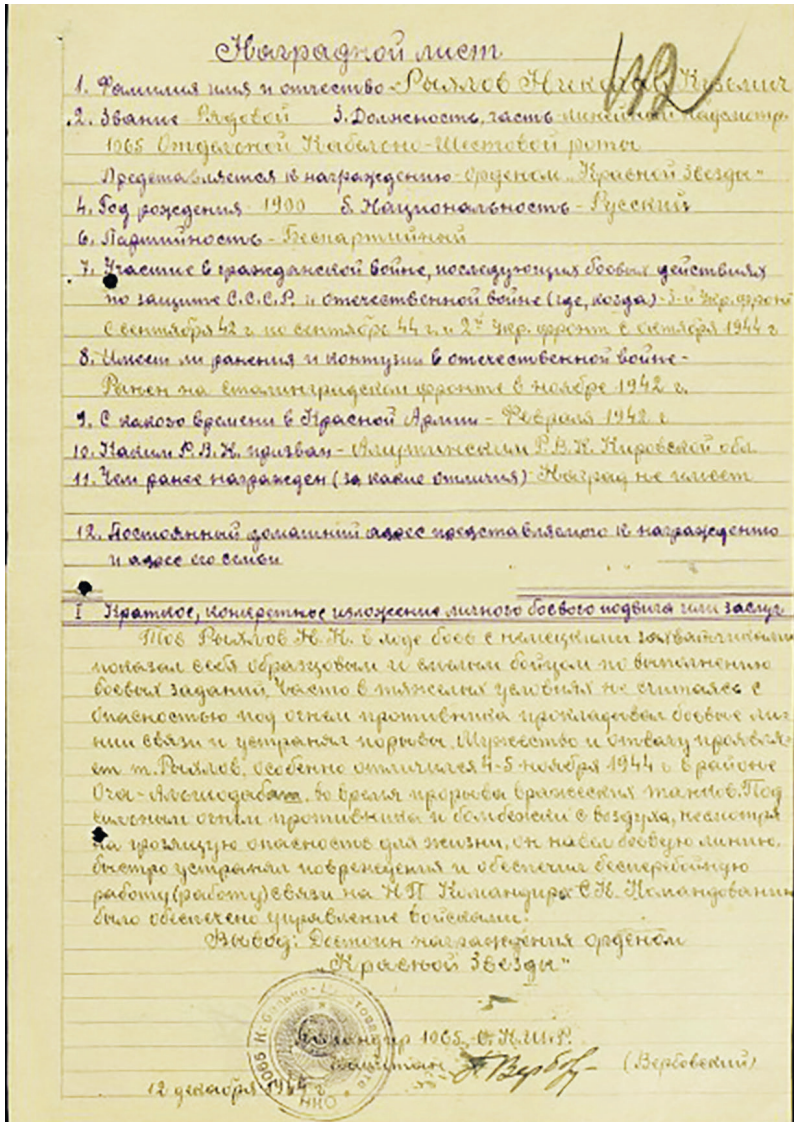 Наградной лист
1. Фамилия имя и отчество - Рыялов
2. Звание Рядовой 3. Должность, часть линейный надсмотр.
1065 Отдельной Кабельно-Шестовой роты
Представляется к награждению - Орденом „Красной Звезды"
4. Год рождения - 1900 5. Национальность - Русский
6. Партийность - Беспартийный
7. Участие в гражданской войне, последующих боевых действиях
по защите С.С.С.Р. и отечественной войне (где, когда) - 3-й Укр. фронт
с сентября 42 г. по сентябрь 44 г. и 2й Укр. фронт с октября 1944 г
8. Имеет ли ранения и контузии в отечественной войне -
Ранен на Сталинградском фронте в ноябре 1942 г.
9. С какого времени в Красной Армии - Февраля 1942 г
10. Каким Р.В.К. призван - Р.В.К. Кировской обл
11. Чем ранее награжден (за какие отличия) Наград не имеет
12. Постоянный домашний адрес представляемого к награждению
и адрес его семьи
I Краткое, конкретное изложение личного боевого подвига или заслуг
Тов Рыялов Н. К. в ходе боев с немецкими захватчиками
показал себя образцовым и смелым бойцом по выполнению
боевых заданий. Часто в тяжелых условиях не считаясь с
опасностью под огнем противника прокладывал боевые ли-
нии связи и устранял порывы. Мужество и отвагу проявля-
ет т. Рыялов, особенно отличился 4-5 ноября 1944 г. в районе
во время прорыва вражеских танков. Под
сильным огнем противника и бомбежки с воздуха, несмотря
на грозящую опасность для жизни, он навел боевую линию,
быстро устранял повреждения и обеспечил бесперебойную
работу (работу) связи на НП Командира С.К. Командованию
было обеспечено управление войсками.
Вывод: Достоин награждения орденом
„Красной Звезды"
Командир 1065 О.К.Ш.Р.
капитан (Вербовский)
12 декабря 1944 г